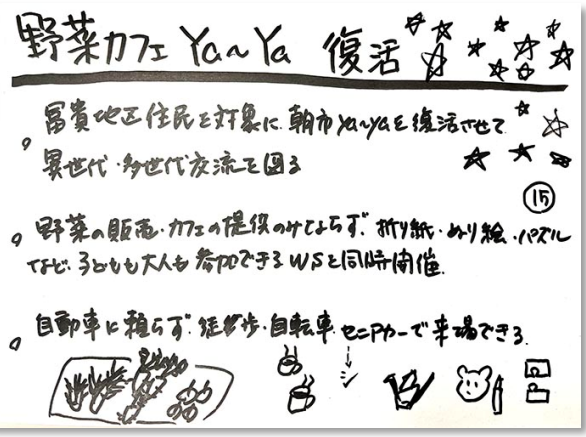 野菜カフェ Ya~Ya 復活
。冨貴地区住民を対象に、朝市Ya~Yaを復活させて
異世代・多世代交流を図る
⑮
。野菜の販売・カフェの提供のみならず、折り紙・ぬり絵・パズル
など、子どもも大人も参加できるWSと同時開催.
。自動車に頼らず、徒歩・自転車、セニアカーで来場できる.
シ